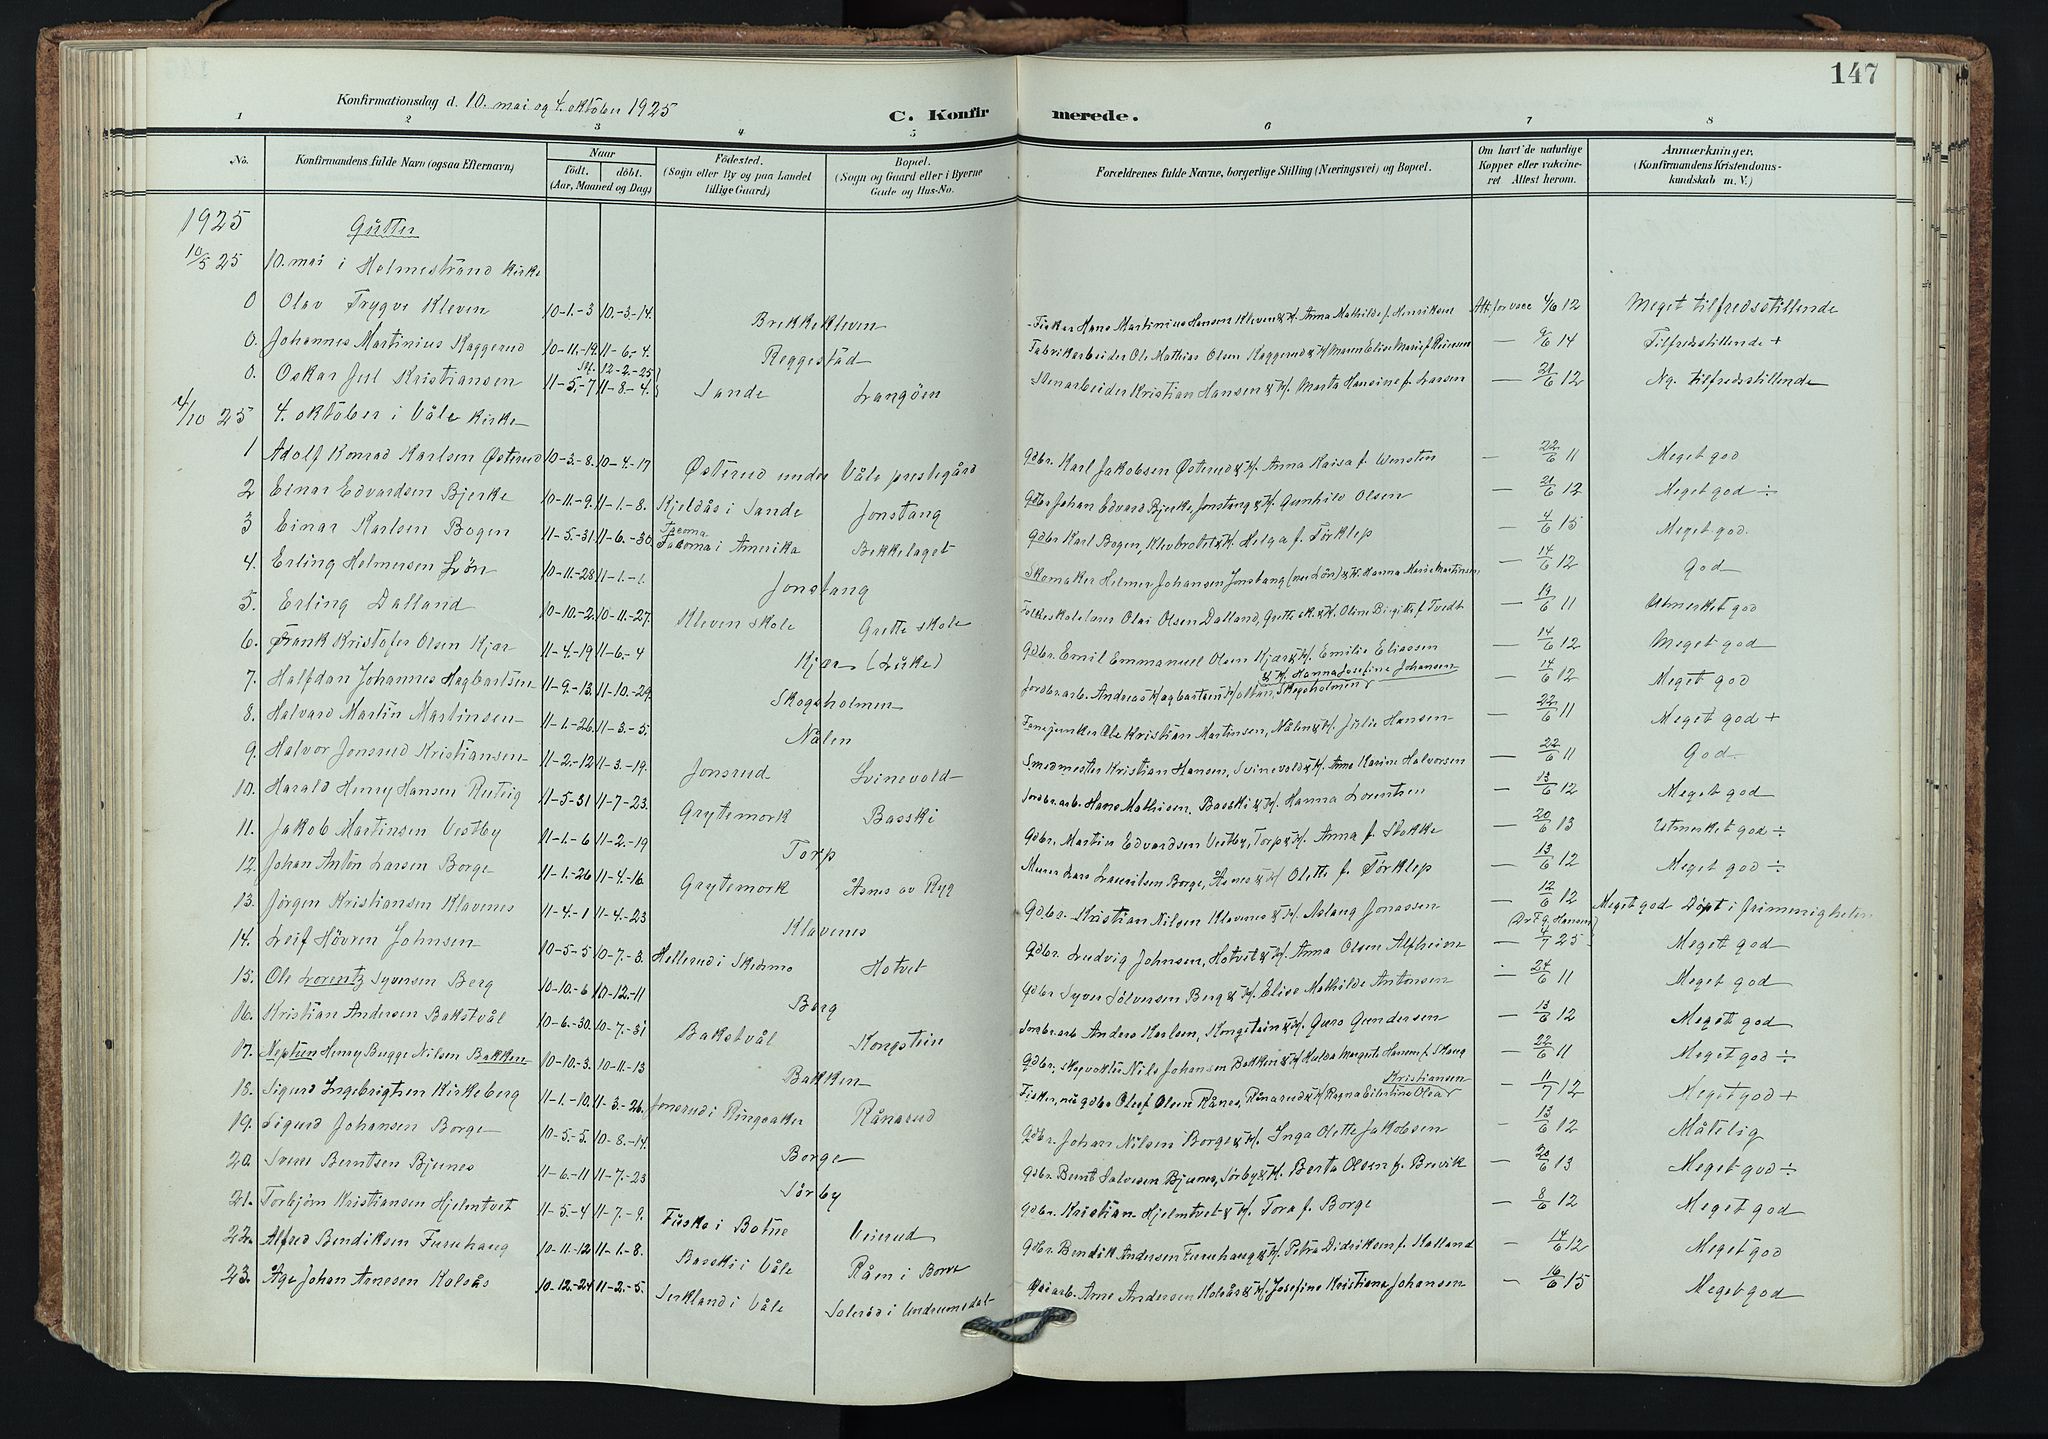 147
Konfirmationsdag d. 10. mai og 4. oktober 1925
C. Konfirmerede.
1 2 3 4 5 6 7 8
No. Konfirmandens fulde Navn (ogsaa Efternavn) Naar født. døbt. (Aar, Maaned og Dag) Fødested. (Sogn eller By og paa Landet tillige Gaard) Bopæl. (Sogn og Gaard eller i Byerne Gade og Hus-No. Forældrenes fulde Navne, borgerlige Stilling (Næringsvei) og Bopæl. Om havt de naturlige Kopper eller vakcineret Attest herom. Anmærkninger. (Konfirmandens Kristendomskundskab m. V.)
1925 Gutter
10/5 25 10. mai i Holmestrand kirke
0 Olav Trygve Kleven 10-1-3 10-3-14. Brekkekleven Fisker Hans Martinius Hansen Kleven & H. Anna Mathilde f. Henriksen Att. for vacc 4/6 12 Meget tilfredsstillende
0. Johannes Martinius Kaggerud 10-11-19. 11-6-4. Reggestad Fabrikarbeider Ole Mathias Olsen Kaggerud & H. Maren Elise Marie f. Reiersen — 9/6 14 Tilfredsstillende +
0. Oskar Jul Kristiansen 11-5-7 12-2-25 11-8-4. Sande Langöen Stenarbeider Kristian Hansen & H. Marta Hansine f. Larsen — 21/6 12 Ng. tilfredsstillende
4/10 25 4. oktober i Våle kirke
1 Adolf Konrad Karlsen Østerud 10-3-8. 10-4-17 Østerud under Våle prestegård Gdbr. Karl Jakobsen Østerud & H. Anna Kaisa f. Wensten — 22/6 11 Meget god
2 Einar Edvardsen Bjerke 10-11-9. 11-1-8. Kjeldås i Sande Jonstang Gdbr Johan Edvard Bjerke, Jonstang & H. Gunhild Olsen — 21/6 12 Meget god ÷
3 Einar Karlsen Bogen 11-5-31 11-6-30 Tacoma i Amerika Bekkelaget Gdbr Karl Bogen, Klevbrotet & H. Helga f. Törklep — 4/6 15 Meget god.
4. Erling Helmersen Lön 10-11-28 11-1-1. Jonstang Skomaker Helmer Johansen Jonstang (nu Lön) & H. Hanna Marie Martinsen — 14/6 12 God
5. Erling Dalland 10-10-2. 10-11-27. Kleven skole Grette skole Folkeskolelærer Olai Olsen Dalland, Grette sk. & H. Oline Birgitte f. Tvedt — 19/6 11 Utmerket god
6. Frank Kristofer Olsen Kjær 11-4-19 11-6-4 Kjær (Luke) Gdbr. Emil Emmanuel Olsen Kjær & H. Emilie Eliassen — 14/6 12 Meget god
7. Halfdan Johannes Hagbartsen 11-9-13. 11-10-29. Skogsholmen Jordbr.arb. Andreas Hagbartsen Holtan, Skogsholmen & H. Hanna Josefine Johansen — 14/6 12 Meget god
8. Halvard Martin Martinsen 11-1-26 11-3-5. Nålen Fanejunker Ole Kristian Martinsen, Nålen & H. Julie Hansen — 22/6 11 Meget god +
9. Halvor Jonsrud Kristiansen 11-2-12 11-3-19. Jonsrud Svinevold Smedmester Kristian Hansen, Svinevold & H. Anne Karine Halvorsen — 22/6 11 God
10. Harald Henry Hansen Rutvig 11-5-31 11-7-23. Grytemork Basski Jordbr.arb. Hans Mathisen, Basski & H. Hanna Lorentzen — 13/6 12 Meget god
11. Jakob Martinsen Vestby 11-1-6 11-2-19 Torp Gdbr. Martin Edvardsen Vestby, Torp & H. Anna f. Stokke — 20/6 13 Utmerket god ÷
12. Johan Anton Larsen Borge 11-1-26 11-4-16. Grytemork Åsnes av Ryg Murer Lars Lauritsen Borge, Åsnes & H Olette f. Törklep — 13/6 12 Meget god ÷
13. Jörgen Kristiansen Klavenes 11-4-1 11-4-23 Klavenes Gdbr. Kristian Nilsen Klavenes & H. Aslaug Jonassen — 12/6 12 Meget god Döpt i frimenigheten
14. Leif Hövren Johnsen 10-5-5 10-7-3. Hellerud i Skedsmo Hotvet Gdbr. Ludvig Johnsen, Hotvet & H. Anna Olsen Alfheim (Dr T. G. Hansen) — 4/7 25 Meget god
15. Ole Lorentz Syversen Berg 10-10-6 10-12-11 Berg Gdbr Syver Sölversen Berg & H. Elise Mathilde Antonsen — 24/6 11 Meget god
16. Kristian Andersen Bakstvål 10-6-30. 10-7-31 Bakstvål Kongstein Jordbr.arb. Anders Karlsen, Kongstein & H. Guro Gundersen — 13/6 12 Meget god
17. Neptun Henry Bugge Nilsen Bakken 10-10-3. 10-11-13 Bakken Gdbr., skogvokter Nils Johansen Bakken & H Hulda Margit Hansen f. Skaug — 22/6 11 Meget god ÷
18. Sigurd Ingebrigtsen Kirkeberg 11-1-10. 11-3-26. Jonsrud i Ringsaker Rånerud Fisker, nu gdbr Oluf Olsen Rånes, Rånerud & H Ragna Kristiansen — 11/7 12 Meget god +
19. Sigurd Johansen Borge 10-5-5. 10-8-14. Borge Gdbr. Johan Nilsen Borge & H. Inga Olette Jakobsen — 13/6 12 Måtelig
20. Sverre Berntsen Bjunes 11-6-11 11-7-23 Sörby Gdbr. Bernt Salvesen Bjunes, Sörby & H. Berta Olsen f. Brevik — 20/6 13 Meget god ÷
21. Torbjörn Kristiansen Hjelmtvet 11-5-4 11-7-9. Fuske i Botne Veierud Gdbr. Kristian Hjelmtvet & H. Tora f. Borge — 8/6 12 Meget god
22. Alfred Bendiksen Furuhaug 10-11-12 11-1-8. Basski i Våle Råen i Borre Gdbr. Bendik Andersen Furuhaug & H. Petra Didriksen f. Halland — 14/6 12 Meget god
23. Åge Johan Arnesen Kolsås 10-12-24 11-2-5. Serkland i Våle Solerød i Undrumsdal Arne Andersen Kolsås & H. Josefine Kristiane Johansen — 16/6 15 Meget god